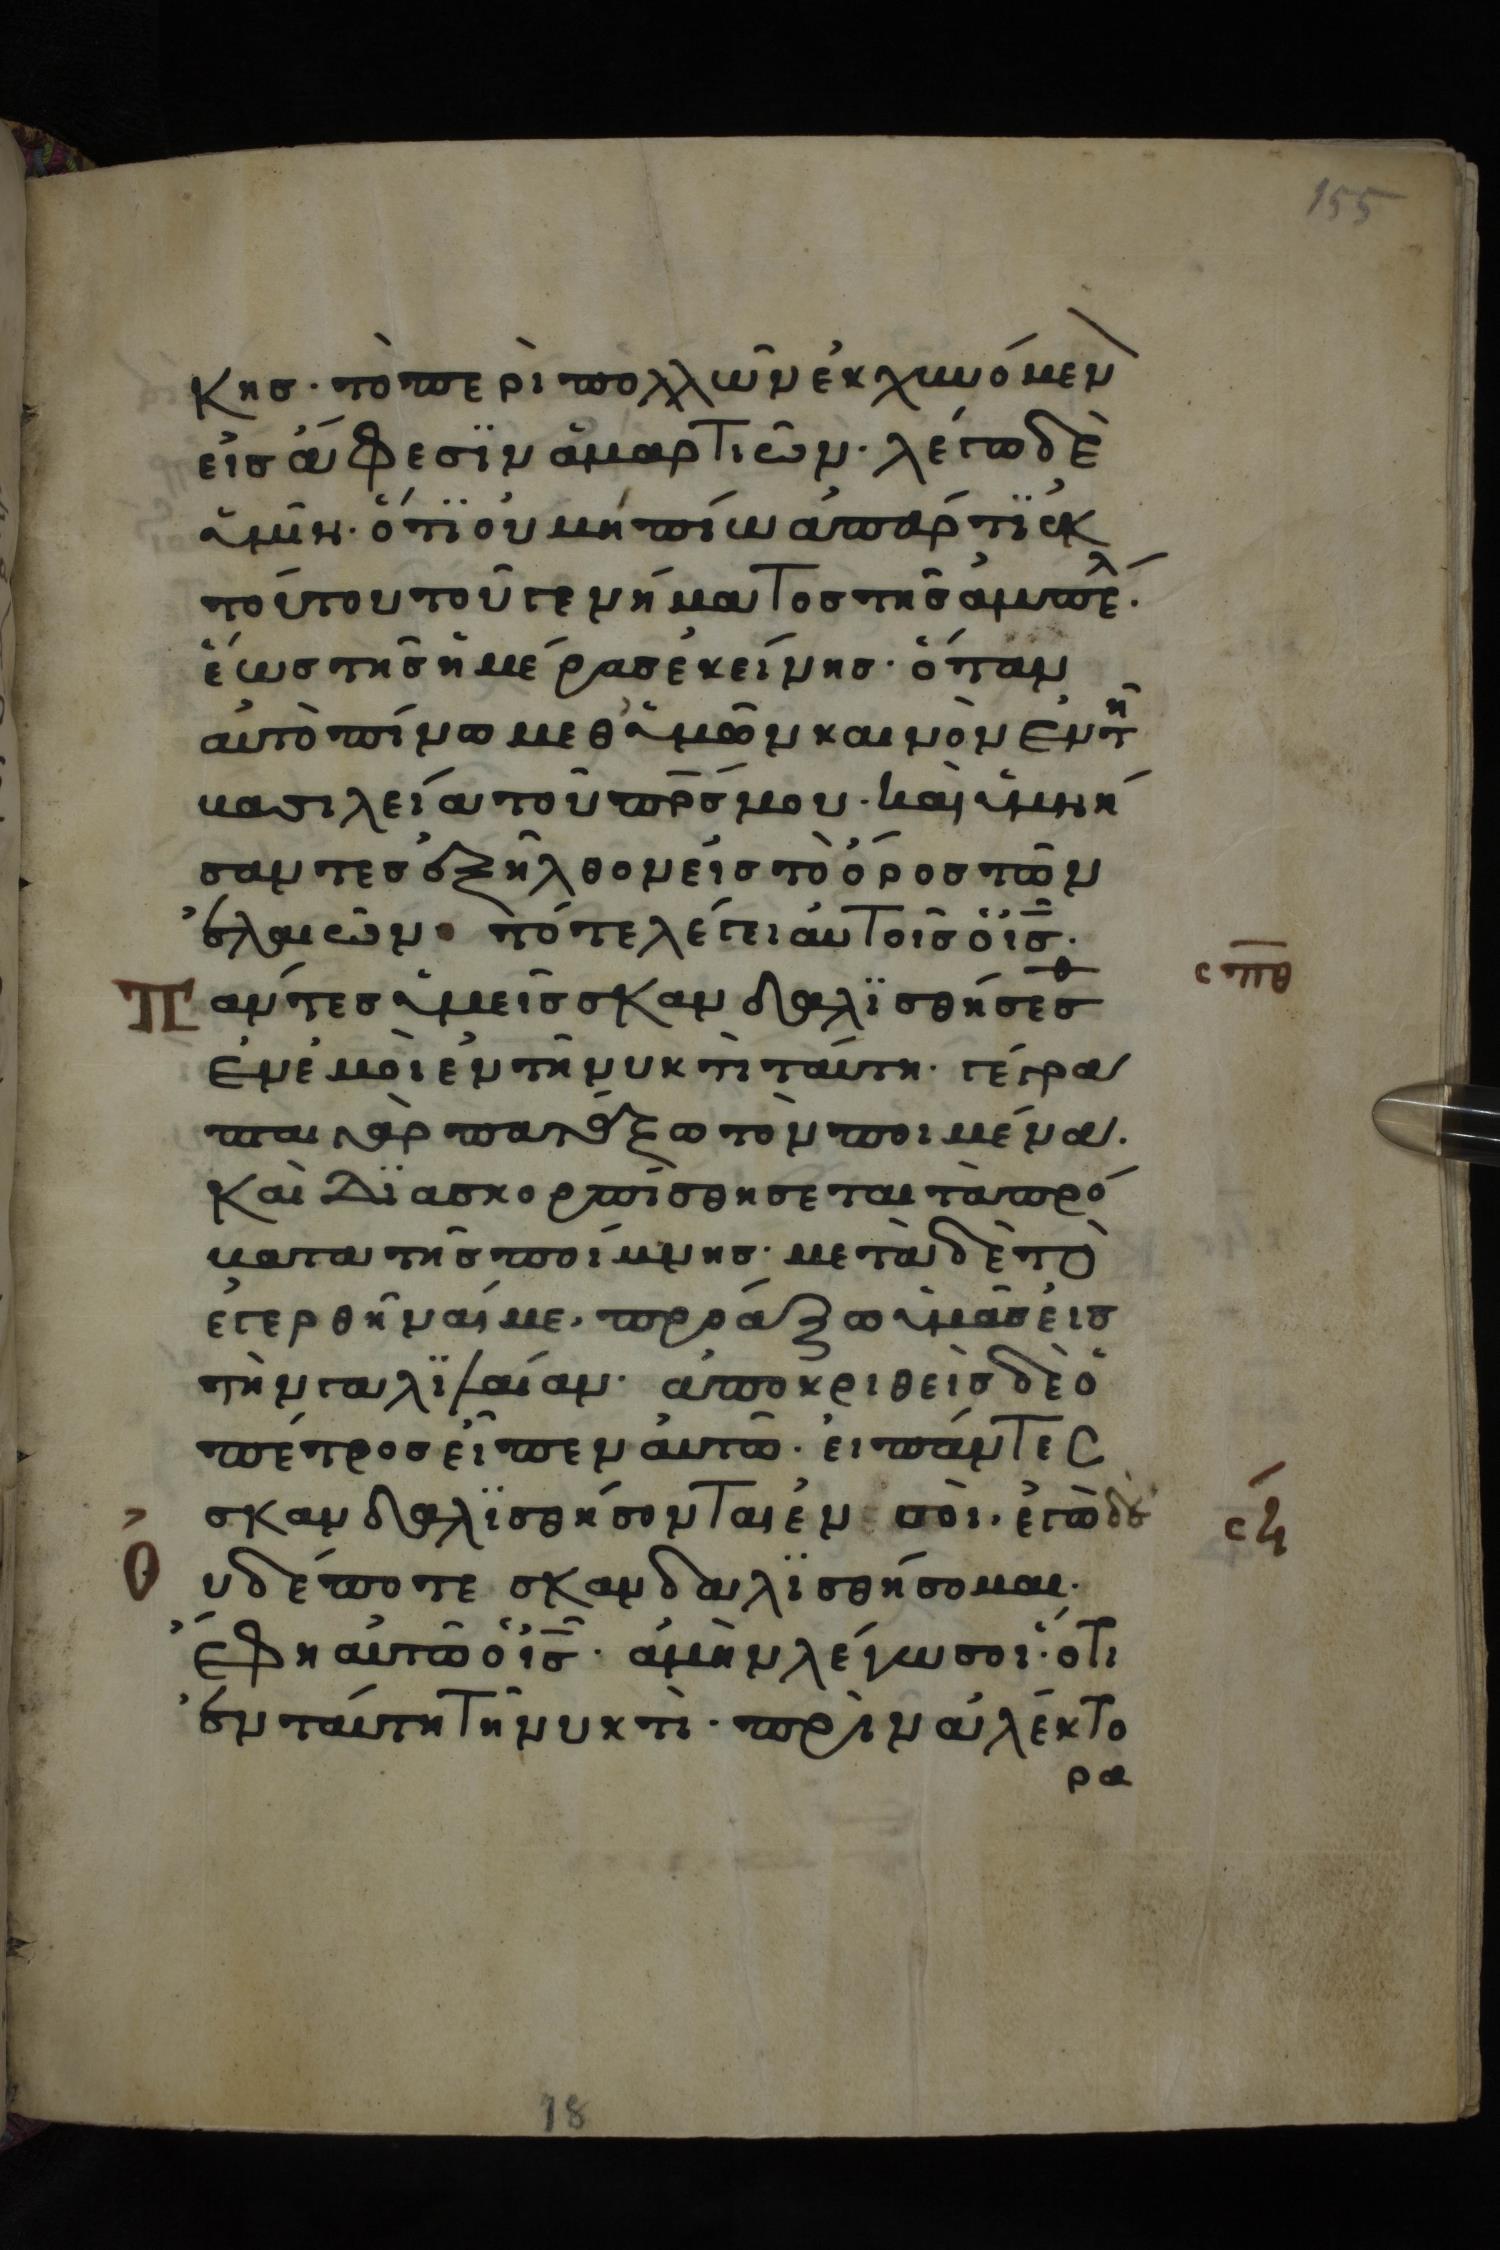 155
κησ· τὸ περὶ πολλῶν ἐκχυνόμεν
εἰσ ἄφεσϊν ἁμαρτιῶν· λέγω δὲ
ὑμῖν· ὅτϊ οὐ μὴ πίω ἀπάρτϊ ἐκ
τούτου τοῦ γενήματοσ τησ ἀμπέλ·
ἕωσ τῆσ ἡμέρασ ἐκείνησ· ὅταν
αὐτὸ πίνω μεθ' ὑμῶν καινὸν ἐν τῆ
βασιλεία τοῦ πρσ μου· καὶ ὑμνή
σαντεσ ἐξῆλθον εἰσ τὸ ὄροσ τῶν
ἐλαιῶν· τότε λέγει αὐτοῖσ ὁ ἰσ·
Πάντεσ ὑμεῖσ σκανδαλϊσθήσεσθ
ἐν ἐμοὶ ἐν τῆ νυκτὶ ταύτη· γέγρα
πται γὰρ πατάξω τὸν ποιμένα·
καὶ διασκορπισθησεται τὰ πρό
βατα τῆσ ποίμνησ· μετὰ δὲ τὸ
ἐγερθῆναί με, προάξω ὑμᾶσ εἰσ
τὴν γαλϊλαίαν· ἀποκριθεὶσ δὲ ὁ
πέτροσ εἶπεν αὐτῶ· εἰ πάντεσ
σκανδαλϊσθήσονται ἐν σοὶ, ἐγὼ δὲ
Οὐδέποτε σκανδαλϊσθήσομαι·
ἔφη αὐτῶ ὁ ἰσ· ἀμὴν λέγω σοι· ὅτι
ἐν ταύτη τῆ νυκτὶ· πρὶν ἀλέκτο
ρα
σπθ
σϟ
18